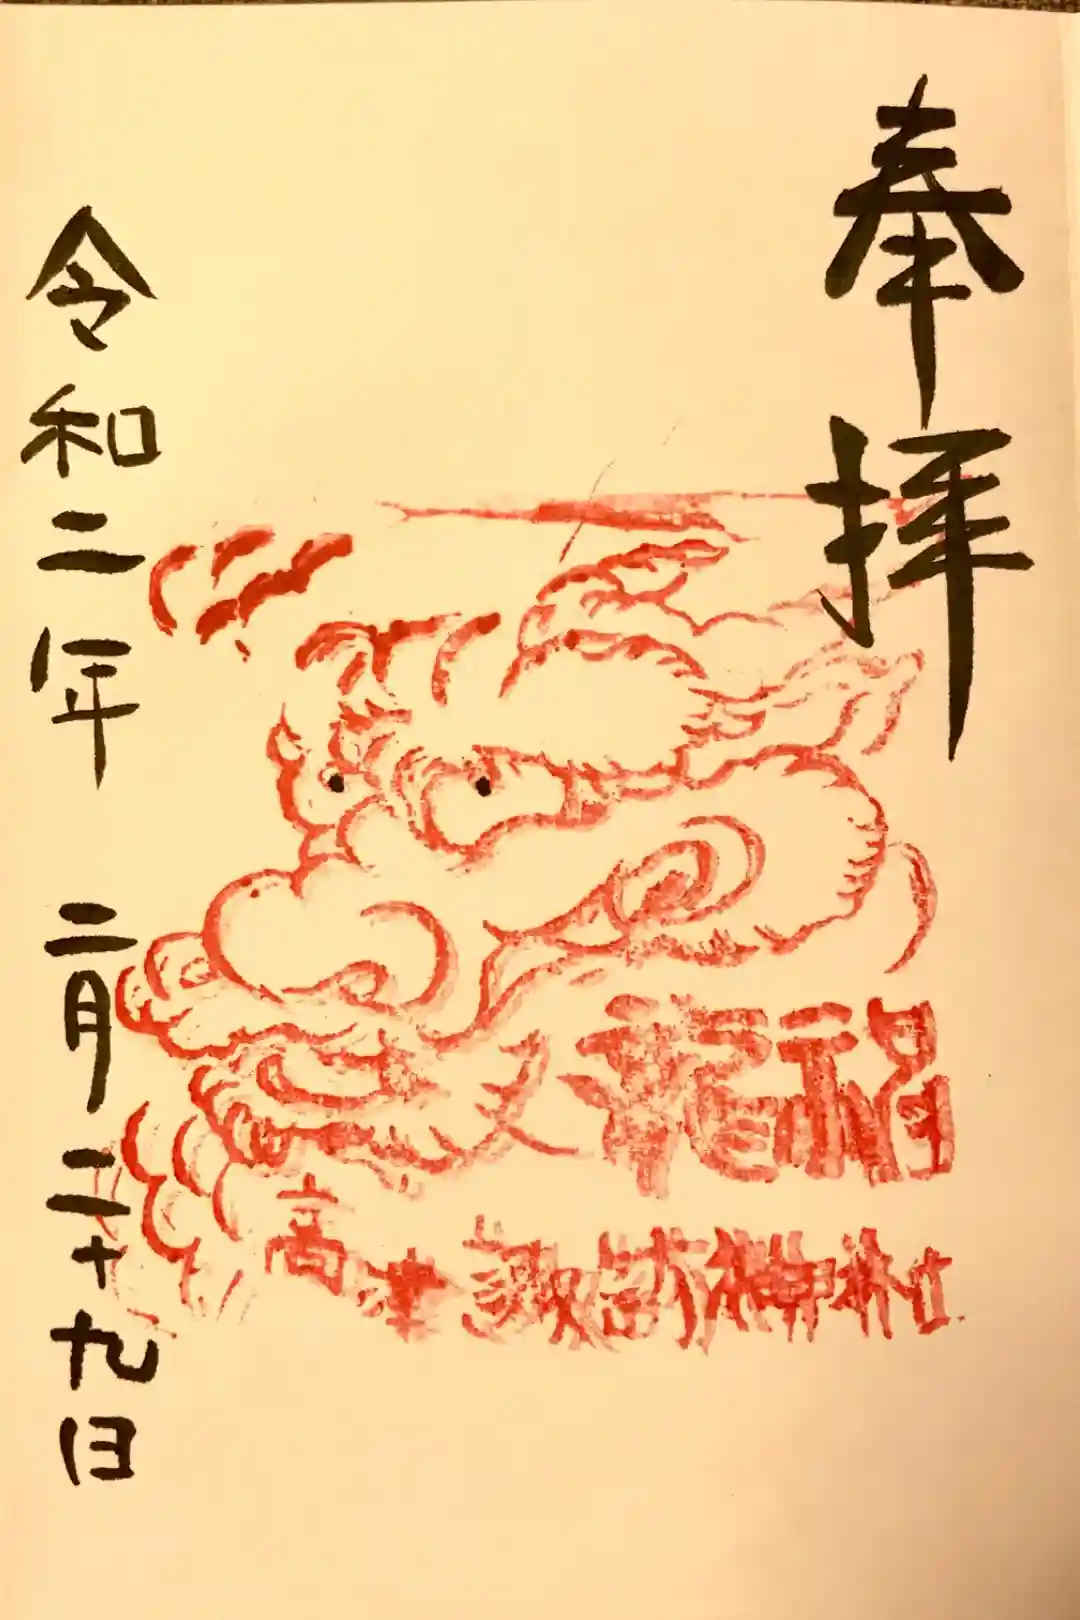 奉拝
福龍
高津諏訪神社
令和二年 二月二十九日